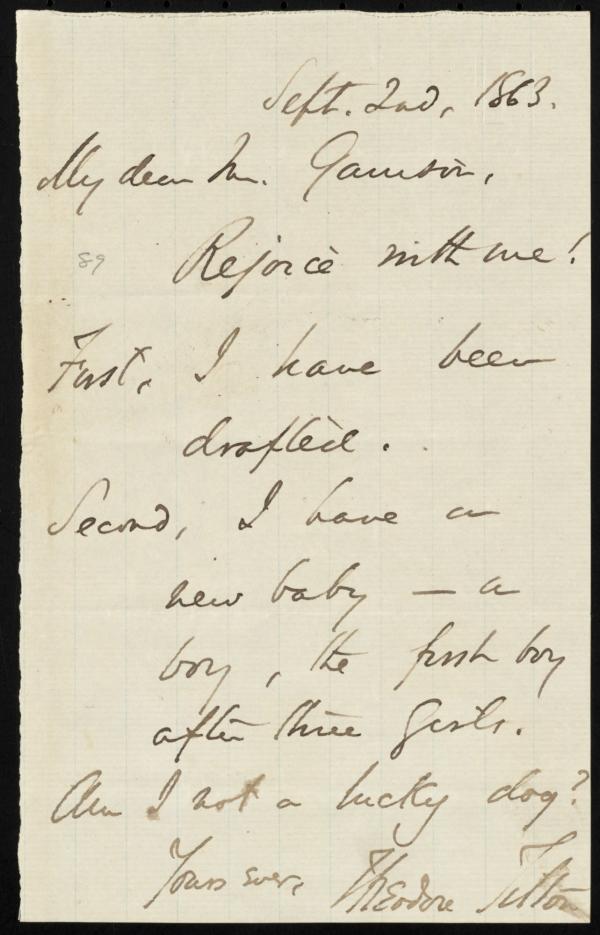 Sept. 2nd, 1863.
My dear Mr. Garrison,
89
Rejoice with me!
First, I have been
drafted.
Second, I have a
new baby — a
boy, the first boy
after three girls.
Am I not a lucky dog?
Yours ever, Theodore Tilton